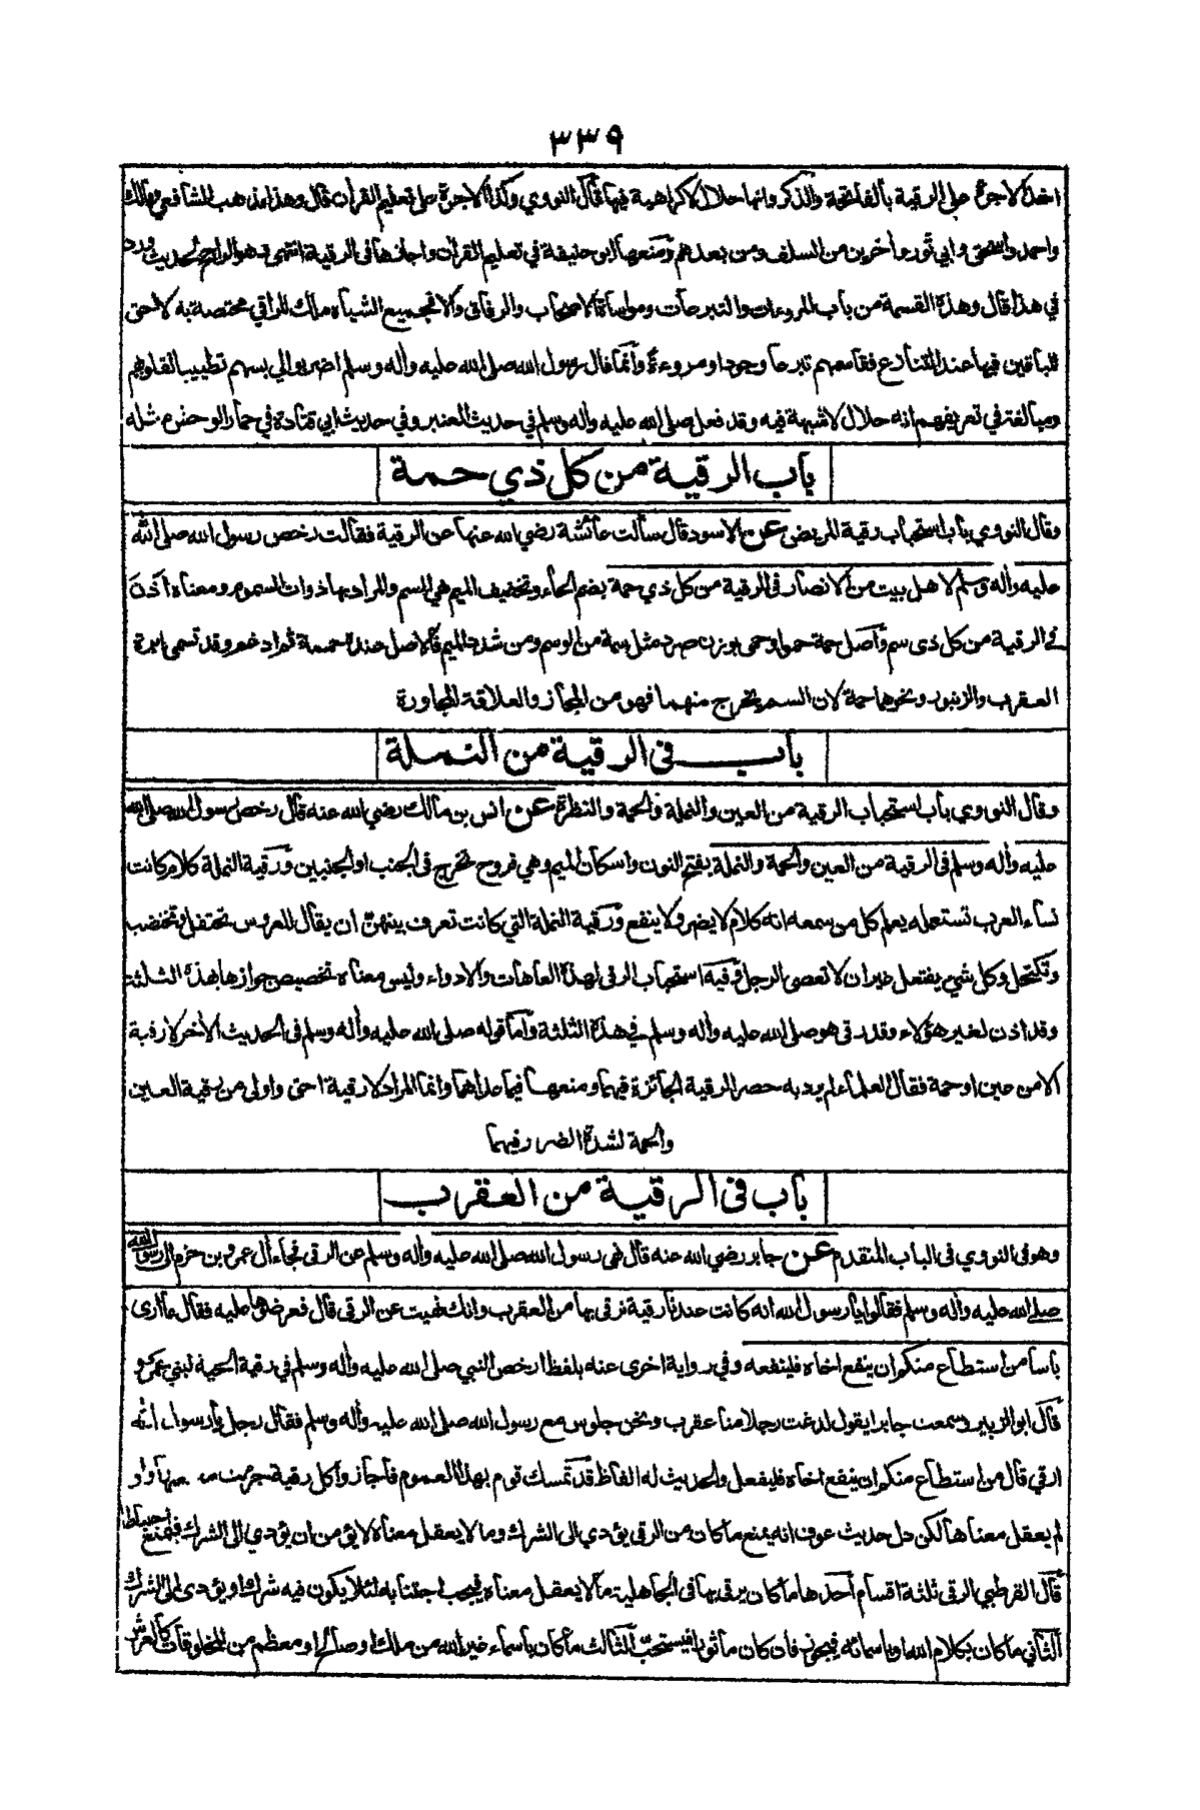 ٣٣٩
اخذ الاجرة على الرقية بالفاتحة والذكر وانها حلال لا كراهية فيها قال النووي وكذا الاجرة على تعليم القرأن قال وهذا مذهب الشافعي ومالك
واحمد واسحق وابي ثور وأخرين من السلف ومن بعدهم ومنعها ابو حنيفة في تعليم القرأن واجازها فى الرقية انتهى وهو الراجح لحديث ورد
في هذا قال وهذة القسمة من باب المروءات والتبرعات ومواساة الاصحاب والرفاق والا فجميع الشياه ملك للراقي مختصة به لا حق
للباقين فيها عند التنازع فقاسمهم تبرعا وجودا ومروءة وانما قال رسول الله صلى الله عليه وأله وسلم اضربوا لي بسهم تطييبا لقلوبهم
ومبالغة في تعريفهم انه حلال لا شبهة فيه وقد فعل صلى الله عليه وأله وسلم في حديث العنبر وفي حديث ابي قتادة في حمار الوحش مثله
باب الرقية من كل ذي حمة
وقال النووي باب استحباب رقية للمريض عن الاسود قال سألت عائشة رضي الله عنها عن الرقية فقالت رخص رسول الله صلى الله
عليه وأله وسلم لاهل بيت من الانصار فى الرقية من كل ذي حمة بضم الحاء وتخفيف الميم هي السم والمراد بها ذوات السموم ومعناه أذن
فى الرقية من كل ذى سم وأصل حمة حمو او حمى بوزن صرد مثل سمة من الوسم ومن شدد الميم فالاصل عنده حممة ثم ادغم وقد تسمى ابرة
العقرب والزنبور ونحوها حمة لان السم يخرج منهما فهو من المجاز والعلاقة المجاورة
باب فى الرقية من النملة
وقال النووي باب استحباب الرقية من العين والنملة والحمة والنظرة عن انس بن مالك رضي الله عنه قال رخص رسول الله صلى الله
عليه وأله وسلم فى الرقية من العين والحمة والنملة بفتح النون واسكان الميم وهي قروح تخرج فى الجنب او الجنبين ورقية النملة كلام كانت
نساء العرب تستعمله يعلم كل من سمعه انه كلام لا يضر ولا ينفع ورقية النملة التي كانت تعرف بينهن ان يقال للعروس تحتفل وتختضب
وتكتحل وكل شيء يفتعل غير ان لا تعصى الرجل وفيه استحباب الرقى لهذة العاهات والادواء وليس معناه تخصيص جوازها بهذة الثلثة
وقد اذن لغير هؤلاء وقد رقى هو صلى الله عليه وأله وسلم في هذة الثلثة وأما قوله صلى الله عليه وأله وسلم فى الحديث الأخر لا رقية
الا من عين او حمة فقال العلماء لم يرد به حصر الرقية الجائزة فيهما ومنعها فيما عداهما وانما المراد لا رقية احق واولى من رقية العين
والحمة لشدة الضرر فيهما
باب فى الرقية من العقرب
وهو فى النووي فى الباب المتقدم عن جابر رضي الله عنه قال نهى رسول الله صلى الله عليه وأله وسلم عن الرقى فجاء أل عمرو بن حزم الى رسول الله
صلى الله عليه وأله وسلم فقالوا يا رسول الله انه كانت عندنا رقية نرقي بها من العقرب وانك نهيت عن الرقى قال فعرضوها عليه فقال ما أرى
بأسا من استطاع منكم ان ينفع اخاه فلينفعه وفي رواية اخرى عنه بلفظ ارخص النبي صلى الله عليه وأله وسلم في رقية الحية لبني عمرو
قال ابو الزبير وسمعت جابرا يقول لدغت رجلا منا عقرب ونحن جلوس مع رسول الله صلى الله عليه وأله وسلم فقال رجل يا رسول الله
ارقي قال من استطاع منكم ان ينفع اخاه فليفعل والحديث له الفاظ قد تمسك قوم بهذا العموم فأجازوا كل رقية جربت منفعتها ولو
لم يعقل معناها لكن دل حديث عوف انه يمنع ما كان من الرقى يؤدي الى الشرك وما لا يعقل معناه لا يؤمن ان يؤدي الى الشرك فيمنع احتياطا
قال القرطبي الرقى ثلثة اقسام أحدها ما كان يرقى به فى الجاهلية مما لا يعقل معناه فيجب اجتنابه لئلا يكون فيه شرك او يؤدى الى الشرك
الثاني ما كان بكلام الله او باسمائه فيجوز فان كان مأثورا فيستحب الثالث ما كان بأسماء غير الله من ملك او صالح او معظم من المخلوقات كالعرش